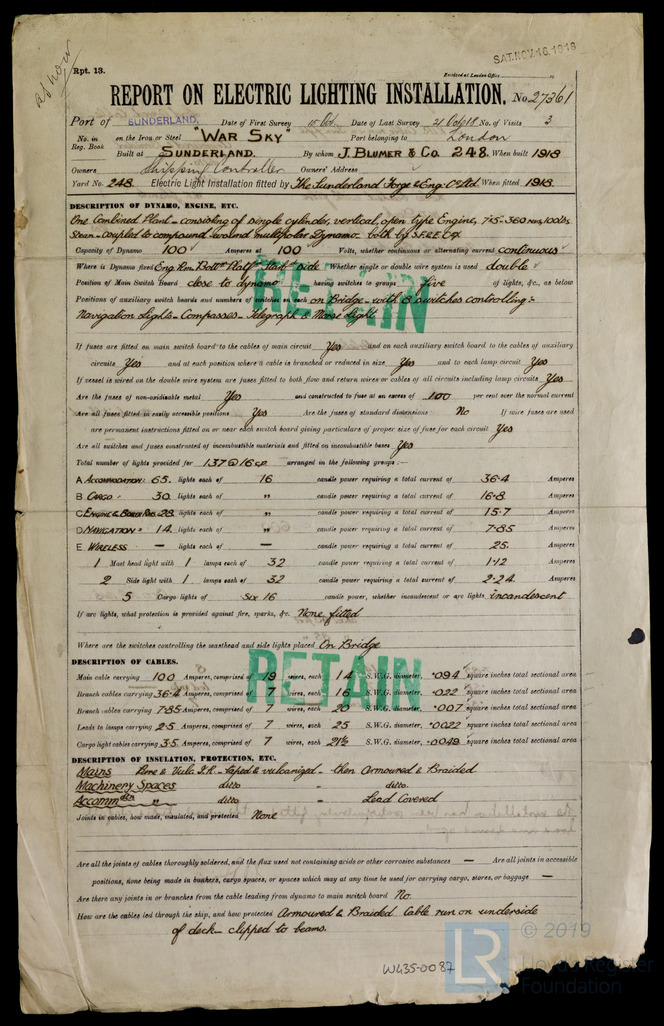 as now
Rpt. 13.
SAT. NOV. 16. 1918
Received at London Office
REPORT ON ELECTRIC LIGHTING INSTALLATION. No. 27361
Port of SUNDERLAND. Date of First Survey 10 Oct. Date of Last Survey 21 Oct 18 No. of Visits 3
No. in Reg. Book on the Iron or Steel "WAR SKY" Port belonging to London
Built at SUNDERLAND. By whom J. BLUMER & Co. 248. When built 1918
Owners Shipping Controller Owners' Address
Yard No. 248 Electric Light Installation fitted by The Sunderland Forge & Eng. Co Ltd. When fitted 1918.
DESCRIPTION OF DYNAMO, ENGINE, ETC.
One Combined Plant - consisting of single cylinder, vertical, open type Engine, 7×5-360 revs, 100lbs
Steam - coupled to compound wound multipolar Dynamo - both by S.F.&E. Co.
Capacity of Dynamo 100 Amperes at 100 Volts, whether continuous or alternating current continuous
Where is Dynamo fixed Eng Rm. Bottm Platf Starbd side Whether single or double wire system is used double
Position of Main Switch Board close to dynamo having switches to groups five of lights, &c., as below
Positions of auxiliary switch boards and numbers of switches on each on Bridge - with 8 switches controlling:-
Navigation Lights - Compasses - Telegraph & Morse Light.
RETAIN
If fuses are fitted on main switch board to the cables of main circuit Yes and on each auxiliary switch board to the cables of auxiliary
circuits Yes and at each position where a cable is branched or reduced in size Yes and to each lamp circuit Yes
If vessel is wired on the double wire system are fuses fitted to both flow and return wires or cables of all circuits including lamp circuits Yes
Are the fuses of non-oxidizable metal Yes and constructed to fuse at an excess of 100 per cent over the normal current
Are all fuses fitted in easily accessible positions Yes Are the fuses of standard dimensions No If wire fuses are used
are permanent instructions fitted on or near each switch board giving particulars of proper size of fuse for each circuit Yes
Are all switches and fuses constructed of incombustible materials and fitted on incombustible bases Yes
Total number of lights provided for 137 @ 16 cp arranged in the following groups :—
A ACCOMMODATION: 65. lights each of 16 candle power requiring a total current of 36.4 Amperes
B CARGO 30 lights each of " candle power requiring a total current of 16.8 Amperes
C ENGINE & BOILER RMS. 28 lights each of " candle power requiring a total current of 15.7 Amperes
D NAVIGATION 14 lights each of " candle power requiring a total current of 7.85 Amperes
E WIRELESS — lights each of — candle power requiring a total current of 25. Amperes
1 Mast head light with 1 lamps each of 32 candle power requiring a total current of 1.12 Amperes
2 Side light with 1 lamps each of 32 candle power requiring a total current of 2.24 Amperes
5 Cargo lights of Six 16 candle power, whether incandescent or arc lights incandescent
If arc lights, what protection is provided against fire, sparks, &c. None fitted
Where are the switches controlling the masthead and side lights placed On Bridge
DESCRIPTION OF CABLES.
RETAIN
Main cable carrying 100 Amperes, comprised of 19 wires, each 14 S.W.G. diameter, .094 square inches total sectional area
Branch cables carrying 36.4 Amperes, comprised of 7 wires, each 16 S.W.G. diameter, .022 square inches total sectional area
Branch cables carrying 7.85 Amperes, comprised of 7 wires, each 20 S.W.G. diameter, .007 square inches total sectional area
Leads to lamps carrying 2.5 Amperes, comprised of 7 wires, each 25 S.W.G. diameter, .0022 square inches total sectional area
Cargo light cables carrying 3.5 Amperes, comprised of 7 wires, each 21½ S.W.G. diameter, .0048 square inches total sectional area
DESCRIPTION OF INSULATION, PROTECTION, ETC.
Mains Pure & Vulc I.R. - taped & vulcanized - then Armoured & Braided
Machinery Spaces ditto - ditto.
Accommdtn " ditto - Lead Covered
Joints in cables, how made, insulated, and protected None
Are all the joints of cables thoroughly soldered, and the flux used not containing acids or other corrosive substances — Are all joints in accessible
positions, none being made in bunkers, cargo spaces, or spaces which may at any time be used for carrying cargo, stores, or baggage —
Are there any joints in or branches from the cable leading from dynamo to main switch board No.
How are the cables led through the ship, and how protected Armoured & Braided Cable run on underside
of deck - clipped to beams.
W435-0087
© 2019
LR Lloyd's Register
Foundation